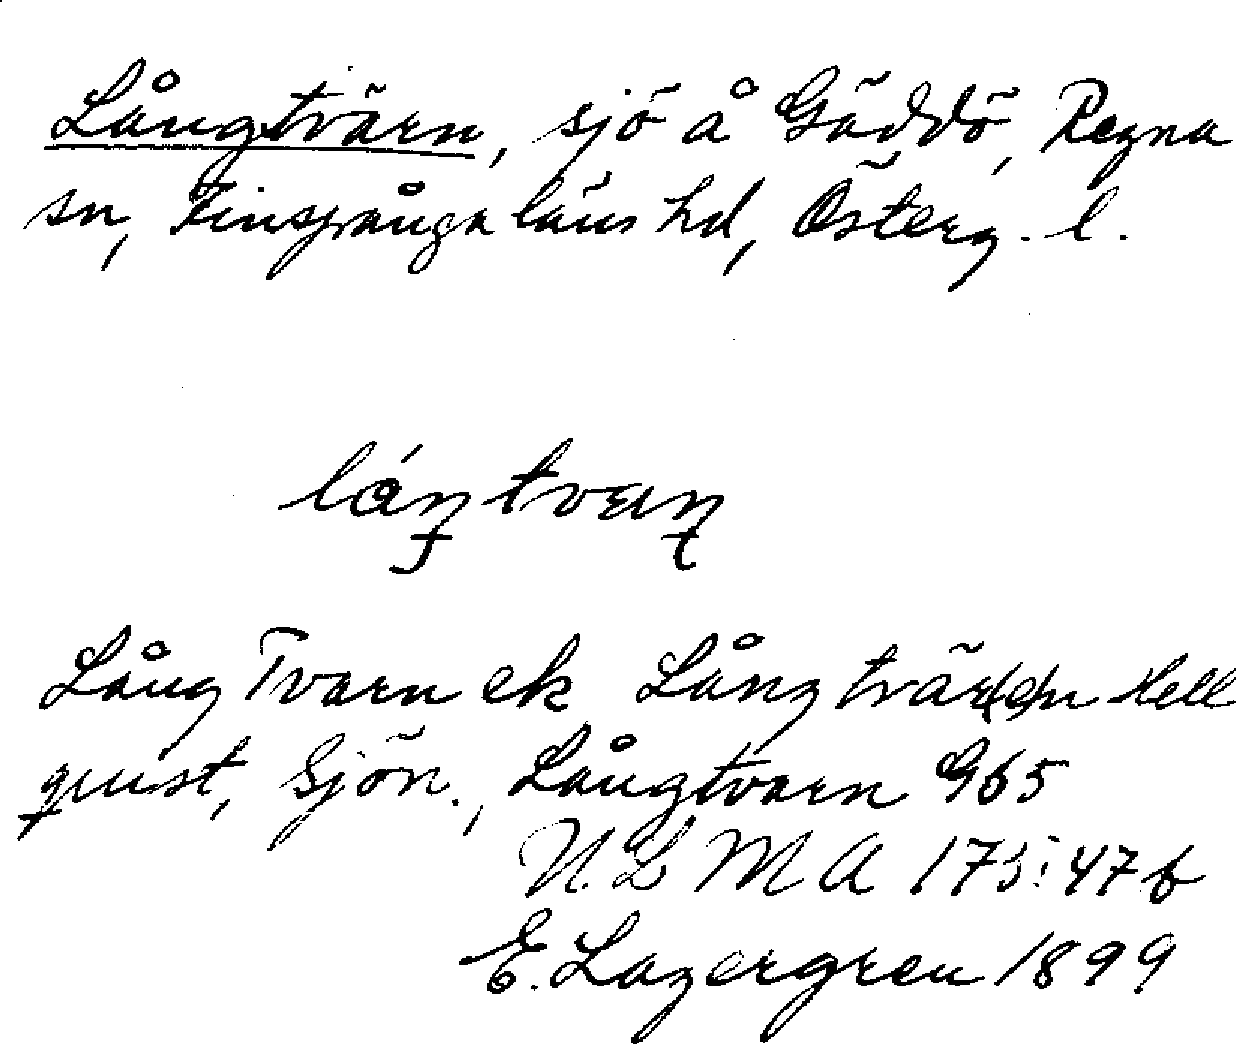 Långtvärn, sjö å Gäddö, Regna
sn, Finspånga läns hd, Österg. l.
Lång Tvarn ek, Lång tvär(e)n Hell
quist, Sjön., Långtvarn G65
ULMA 175:47 b
E. Lagergren 1899